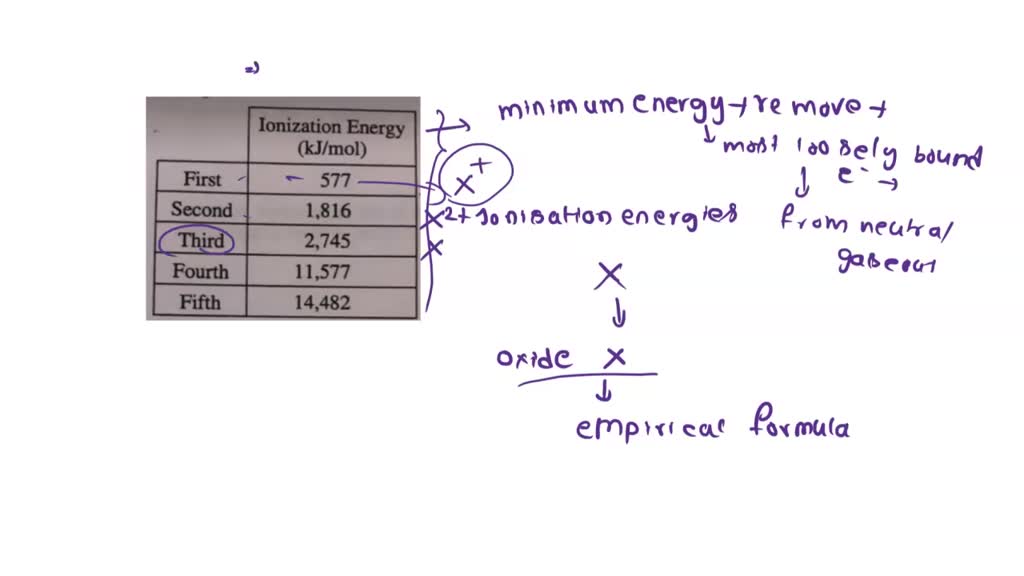 =>
Ionization Energy
(kJ/mol)
First 577
Second 1,816
Third 2,745
Fourth 11,577
Fifth 14,482
x+
x2+
x
minimum energy → remove →
most loosely bound
e- →
from neutral
gaseous
Ionisation energies
X
oxide X
empirical formula